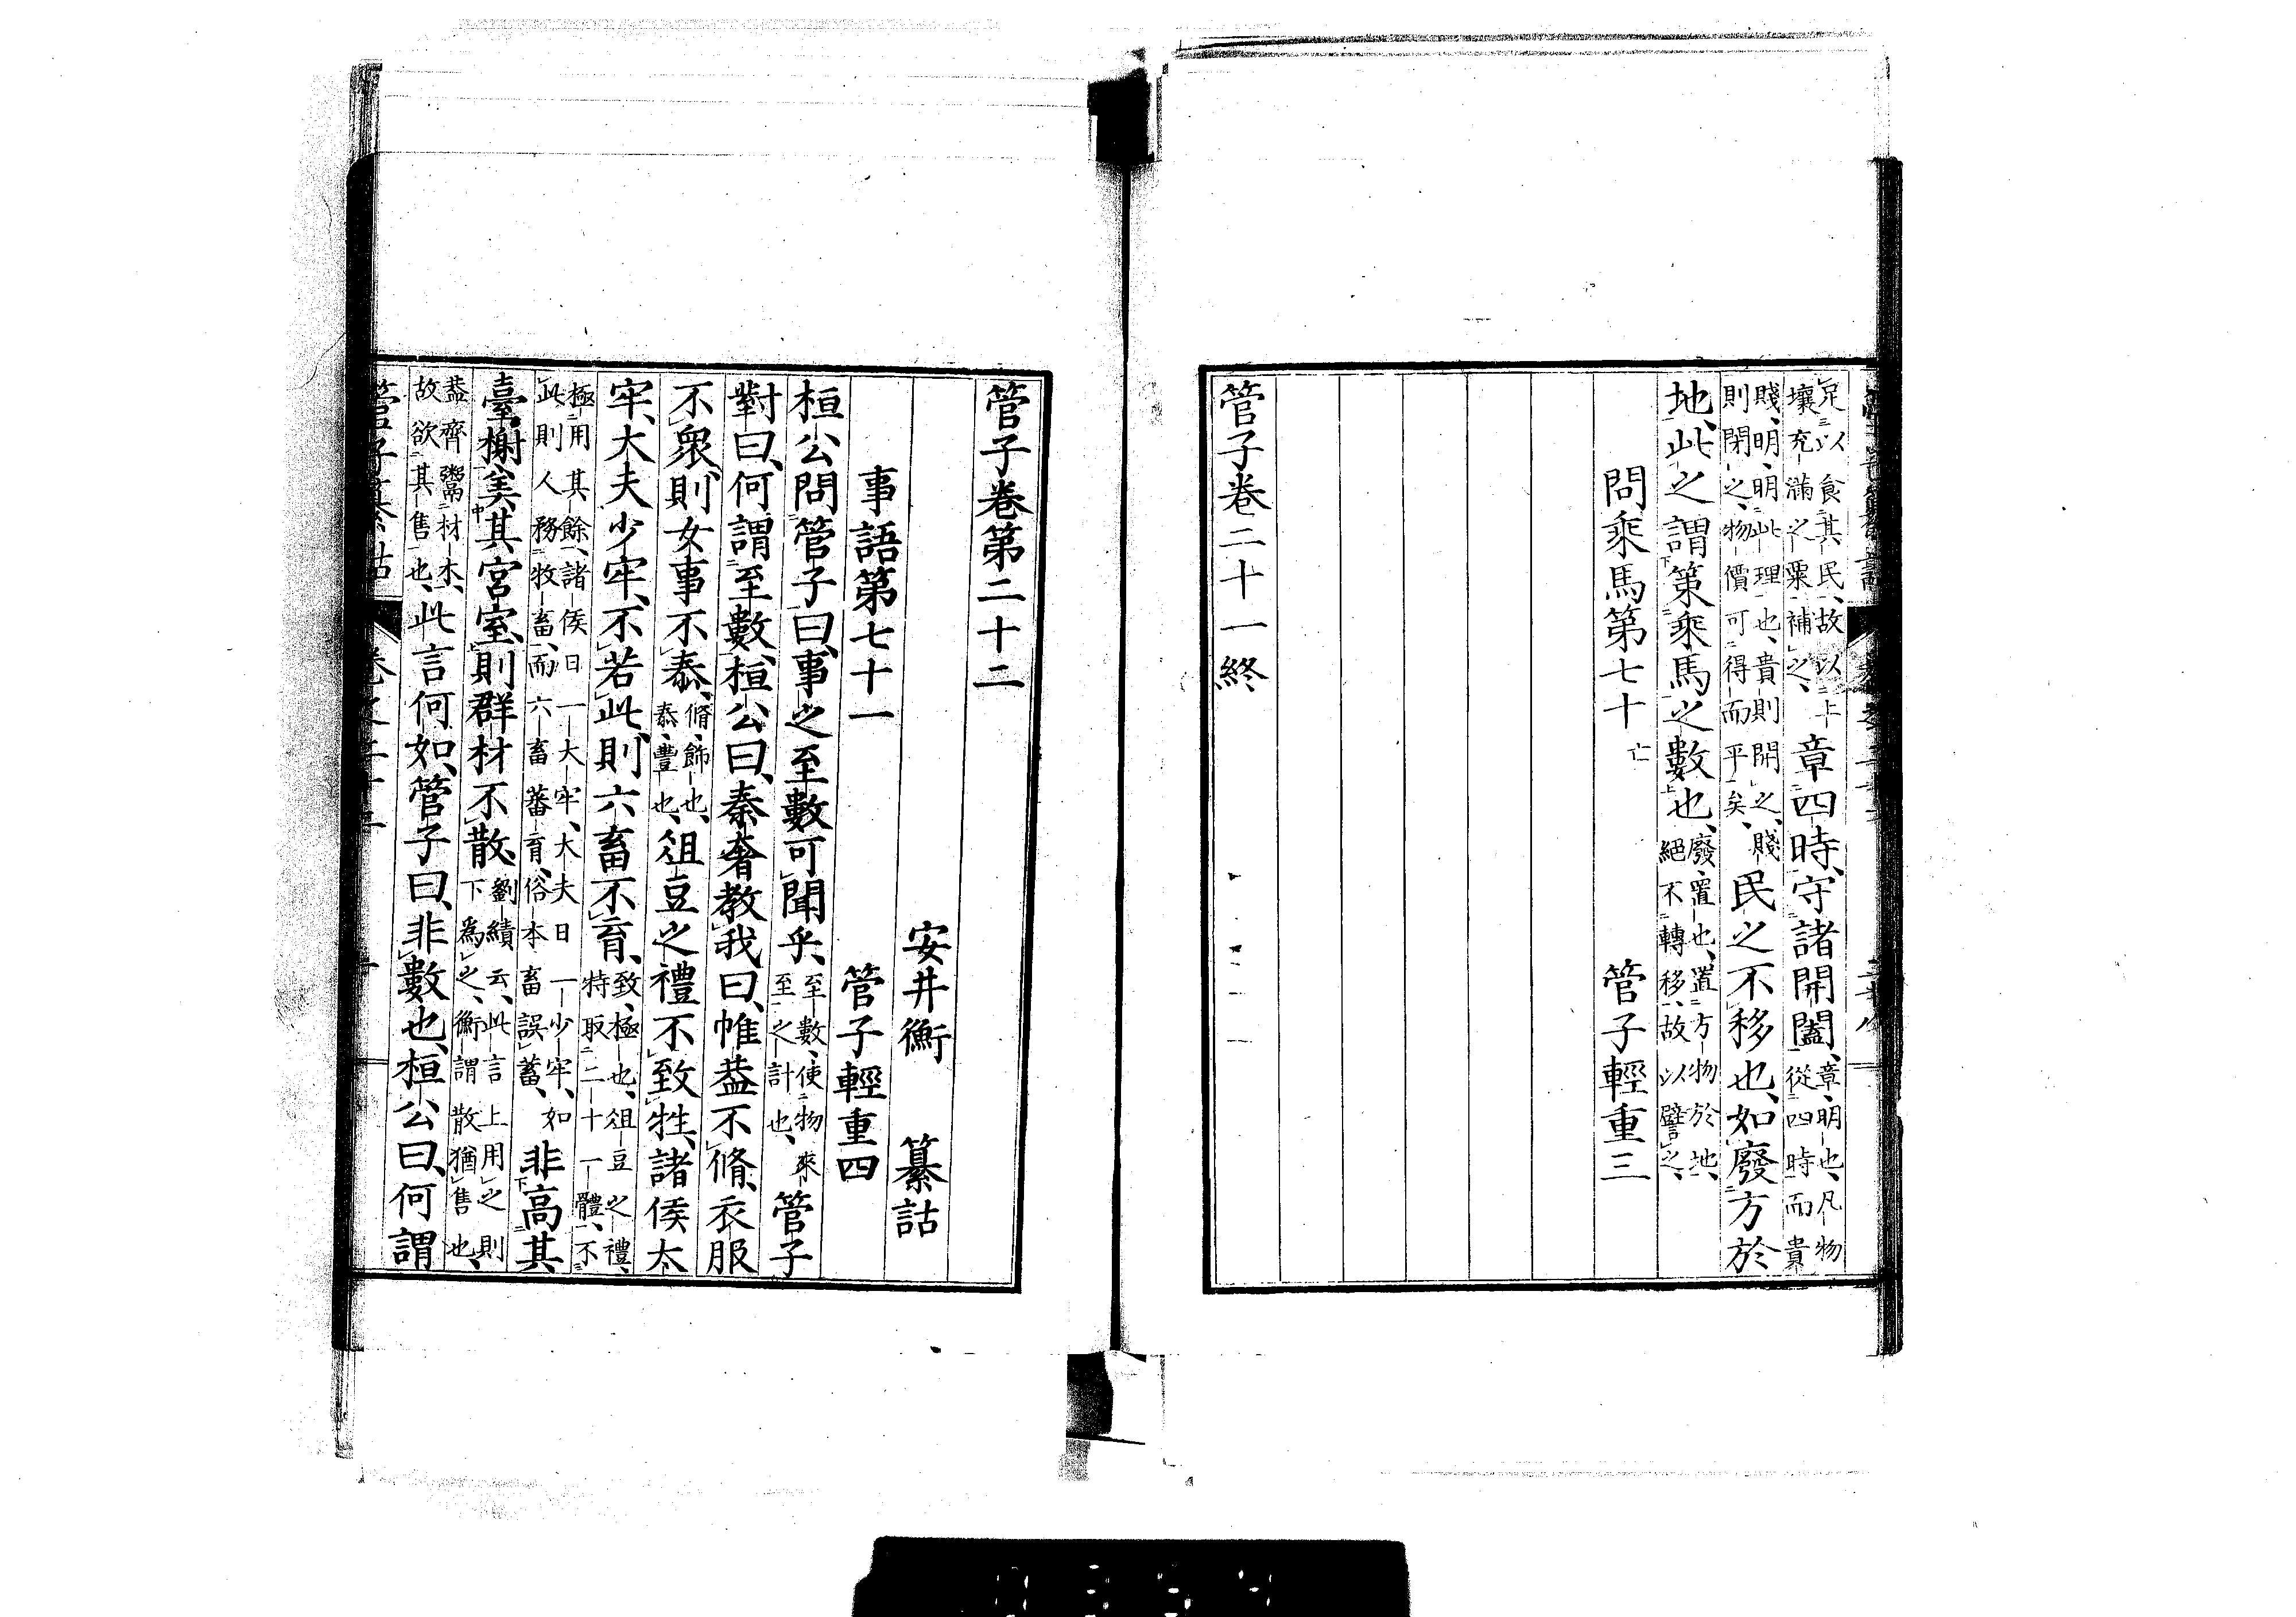 足以食其民、故以上
壤充滿之粟補之、
章四時、守諸開闔、
章、明也、凡物
從四時而貴
賤、明、明此理也、貴則開之、賤
則閉之、物價可得而平矣、
民之不移也、如廢方於
地、此之謂策乘馬之數也、
廢、置也、置方物於地、
絕不轉移、故以譬之、
問乘馬第七十 亡 管子輕重三
管子卷二十一終
管子卷第二十二
安井衡 纂詁
事語第七十一 管子輕重四
桓公問管子曰、事之至數可聞乎、
至數、使物來
至之計也、
管子
對曰、何謂至數、桓公曰、秦奢教我曰、帷蓋不脩、衣服
不衆、則女事不泰、
脩、飾也、
泰、豐也、
俎豆之禮不致牲、諸侯太
牢、大夫少牢、不若此、則六畜不育、
致、極也、俎豆之禮、
特取二十一體、不
極用其餘、諸侯日一大牢、大夫日一少牢、如
此則人務牧畜、而六畜蕃育、俗本畜誤蓄、
非高其
臺榭、美其宮室、則群材不散、
劉績云、此言上用之則
下為之、衡謂散猶售也、
蓋齊鬻材木、
故欲其售也、
此言何如、管子曰、非數也、桓公曰、何謂
管子纂詁 卷之二十二 一